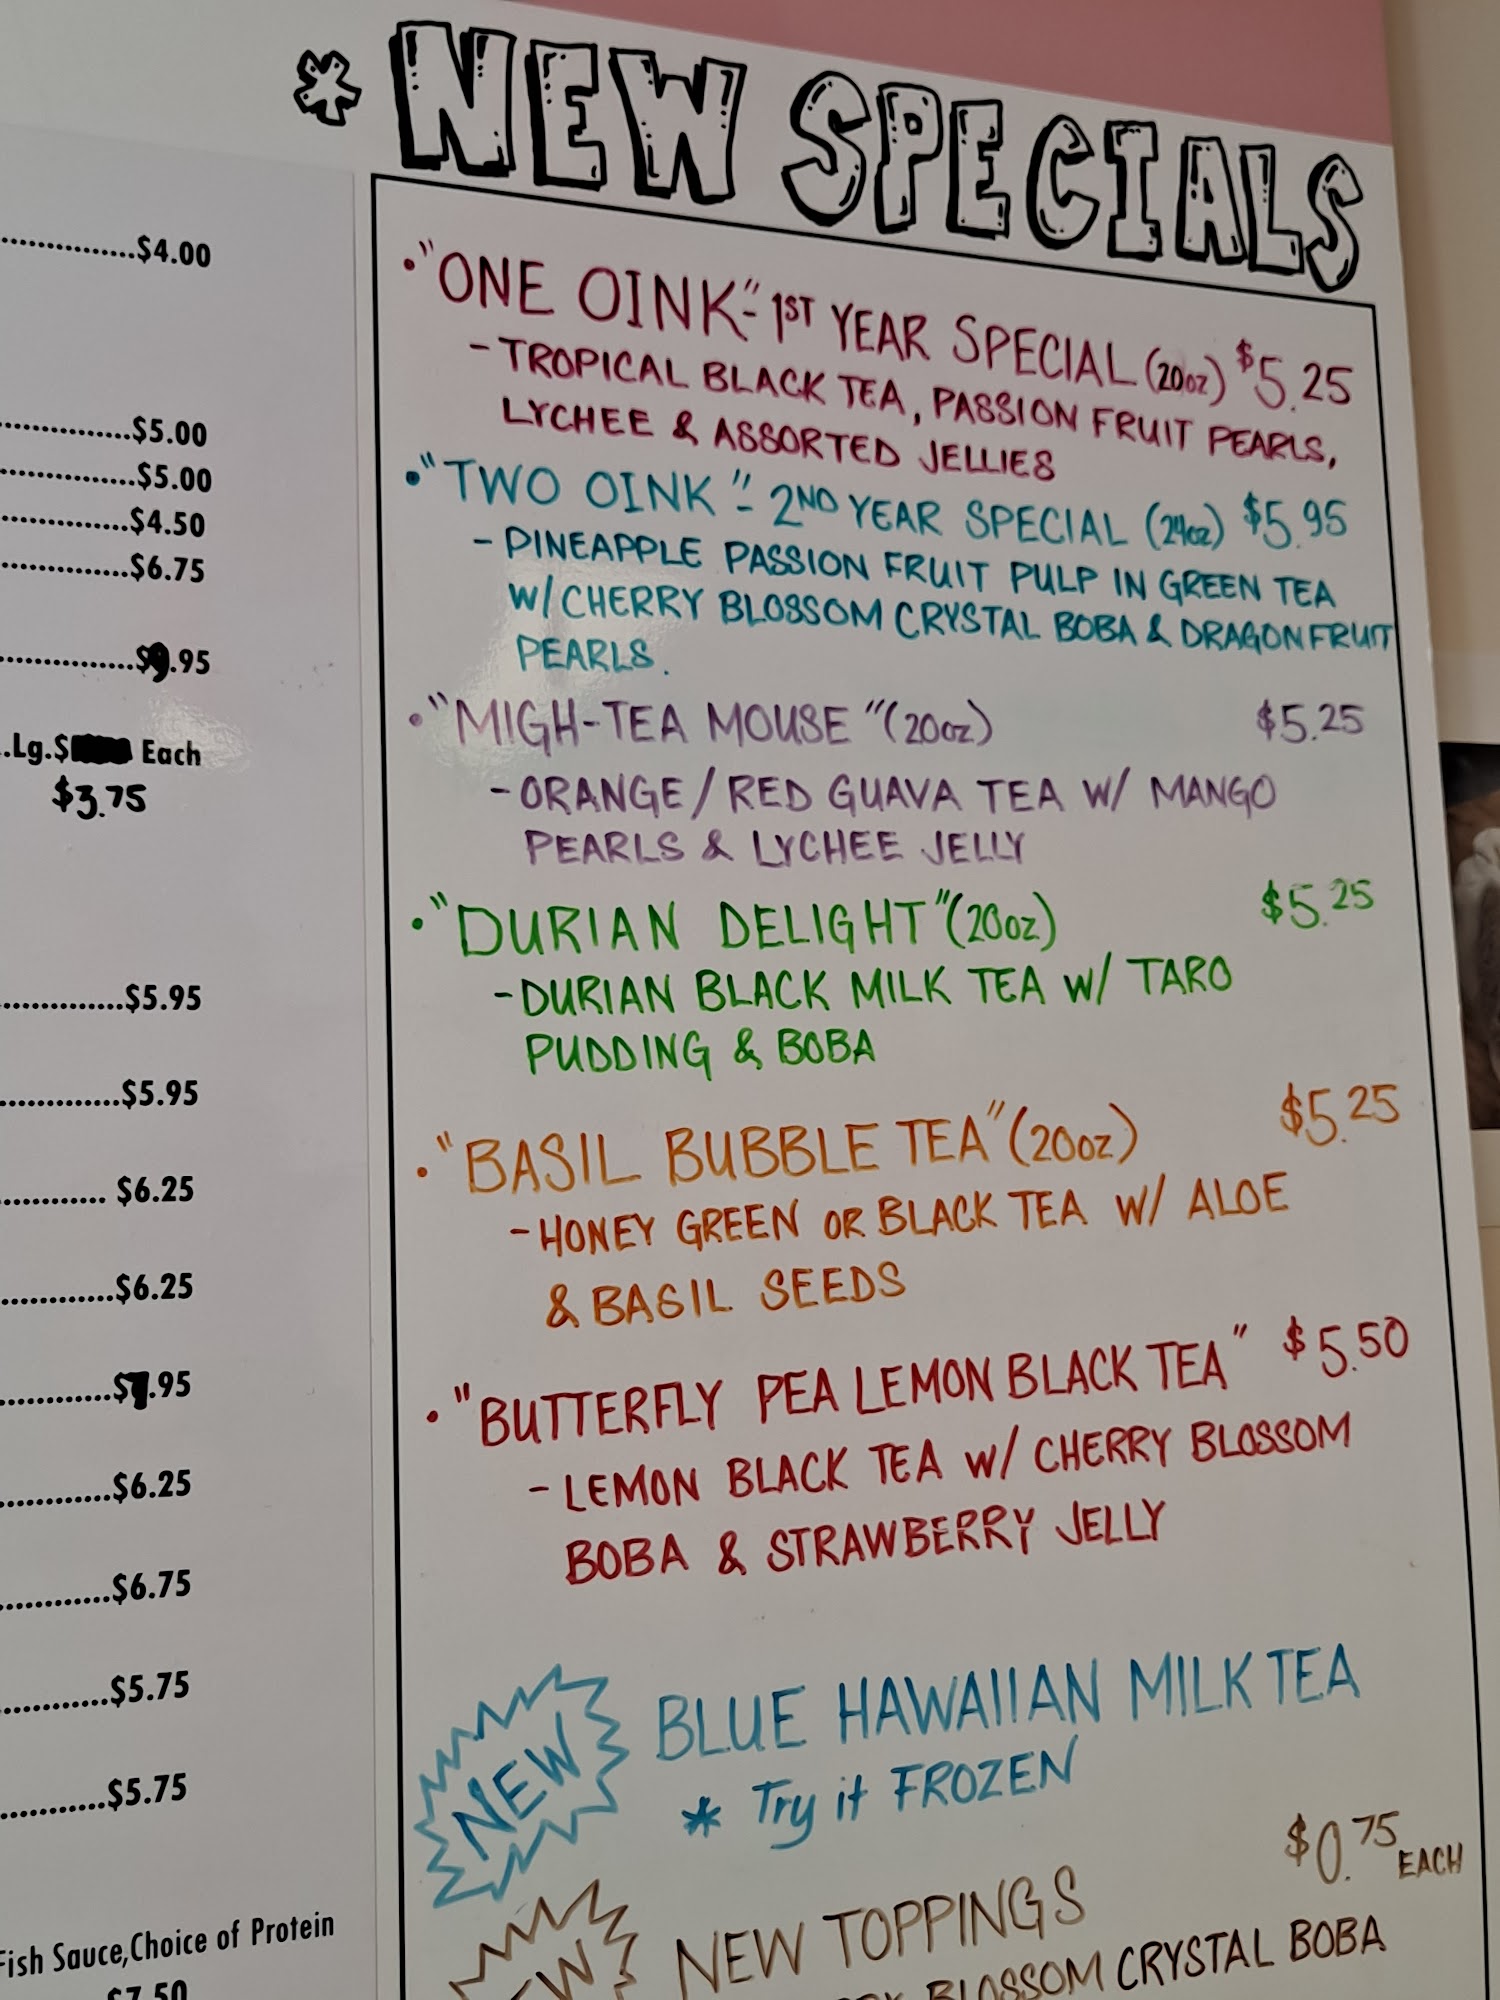 * NEW SPECIALS
...............$4.00
...............$5.00
...............$5.00
...............$4.50
...............$6.75
...............$9.95
..Lg.$ Each
$3.75
...............$5.95
...............$5.95
............... $6.25
...............$6.25
...............$7.95
...............$6.25
...............$6.75
...............$5.75
...............$5.75
Fish Sauce,Choice of Protein
$7.50
• "ONE OINK"- 1ST YEAR SPECIAL (20oz) $5.25
- TROPICAL BLACK TEA, PASSION FRUIT PEARLS,
LYCHEE & ASSORTED JELLIES
• "TWO OINK"- 2ND YEAR SPECIAL (24oz) $5.95
- PINEAPPLE PASSION FRUIT PULP IN GREEN TEA
W/ CHERRY BLOSSOM CRYSTAL BOBA & DRAGONFRUIT
PEARLS.
• "MIGH-TEA MOUSE" (20oz) $5.25
- ORANGE / RED GUAVA TEA W/ MANGO
PEARLS & LYCHEE JELLY
• "DURIAN DELIGHT" (20oz) $5.25
- DURIAN BLACK MILK TEA W/ TARO
PUDDING & BOBA
• "BASIL BUBBLE TEA" (20oz) $5.25
- HONEY GREEN OR BLACK TEA W/ ALOE
& BASIL SEEDS
• "BUTTERFLY PEA LEMON BLACK TEA" $5.50
- LEMON BLACK TEA W/ CHERRY BLOSSOM
BOBA & STRAWBERRY JELLY
NEW BLUE HAWAIIAN MILK TEA
* Try it FROZEN
NEW TOPPINGS $0.75 EACH
BLOSSOM CRYSTAL BOBA